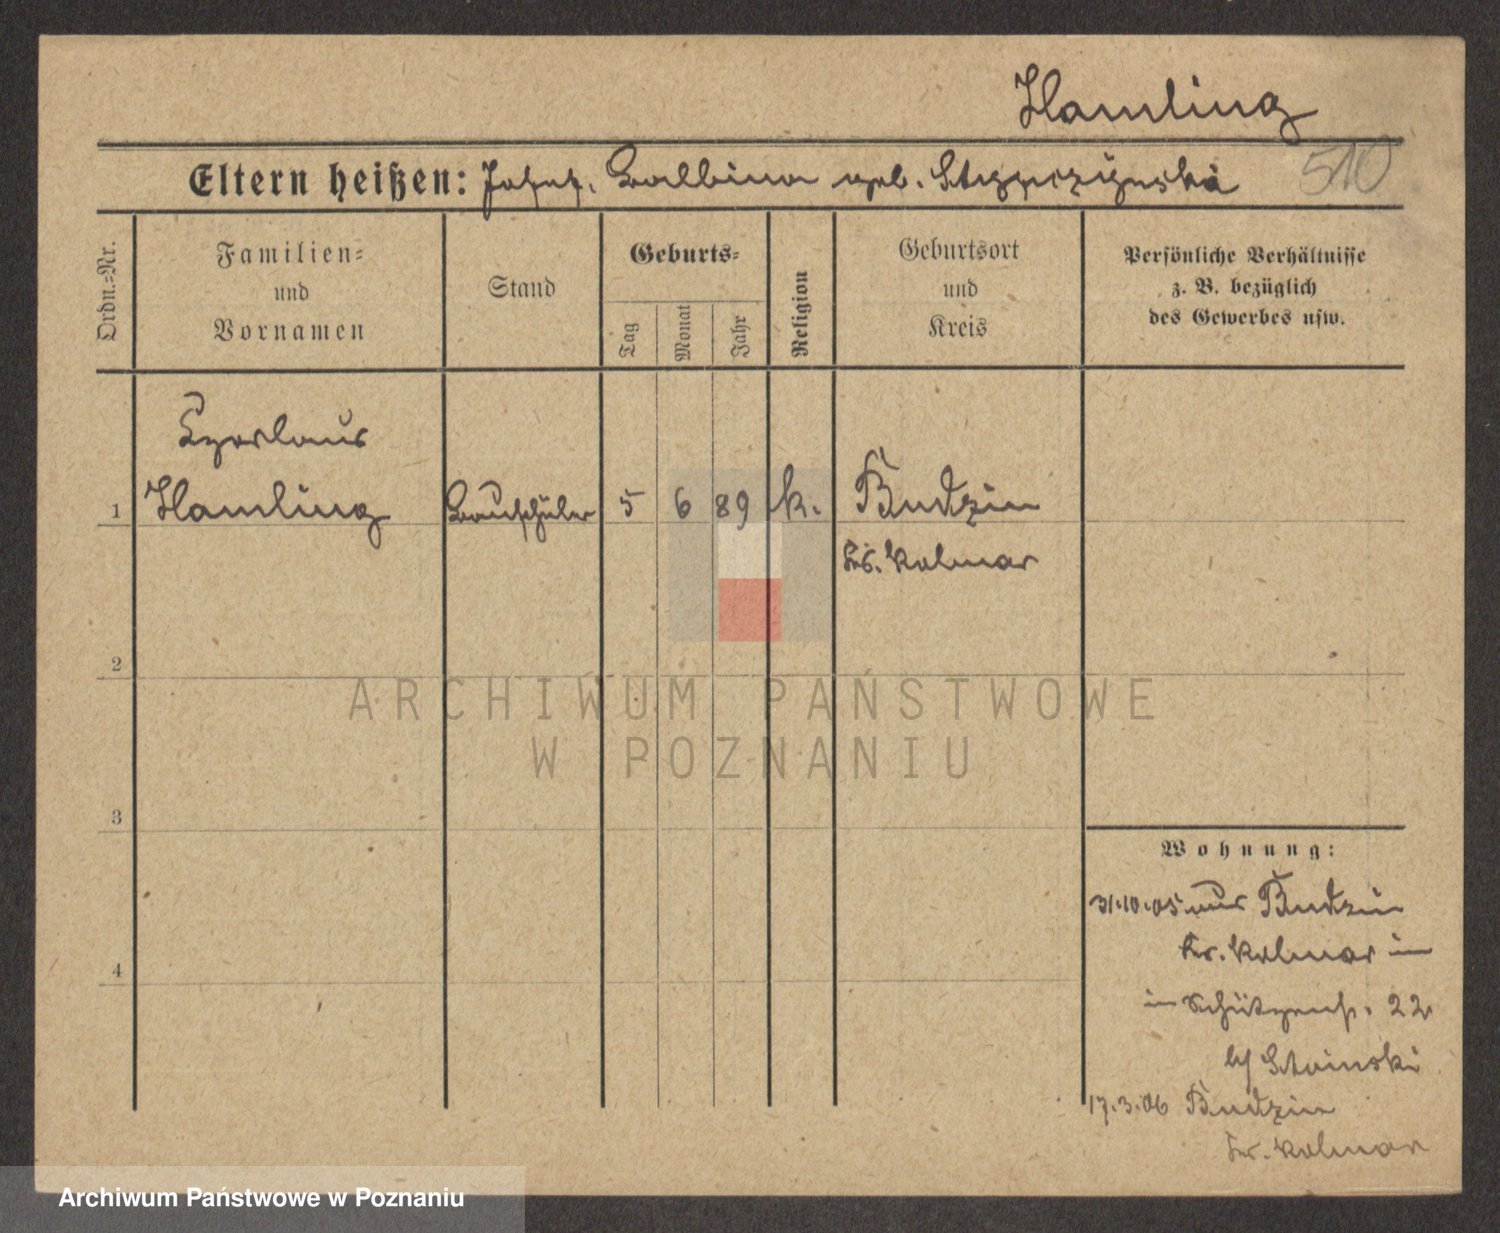 Hamling
Eltern heißen: Josef, Balbina geb. Stypczyńska
510
Ordn.=Nr.
Familien=
und
Vornamen
Stand
Geburts=
Tag
Monat
Jahr
Religion
Geburtsort
und
Kreis
Persönliche Verhältnisse
z. B. bezüglich
des Gewerbes usw.
Hamling
1
Bauschüler
5
6
89
k.
Budzin
Krs. Kolmar
2
3
4
ARCHIWUM PAŃSTWOWE
W POZNANIU
Wohnung:
31.10.05 aus Budzin
Kr. Kolmar in
in Schützenstr. 22
17.3.06 Budzin
Kr. Kolmar
Archiwum Państwowe w Poznaniu